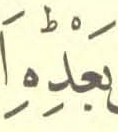 بَعْدِهٖؕ اَ